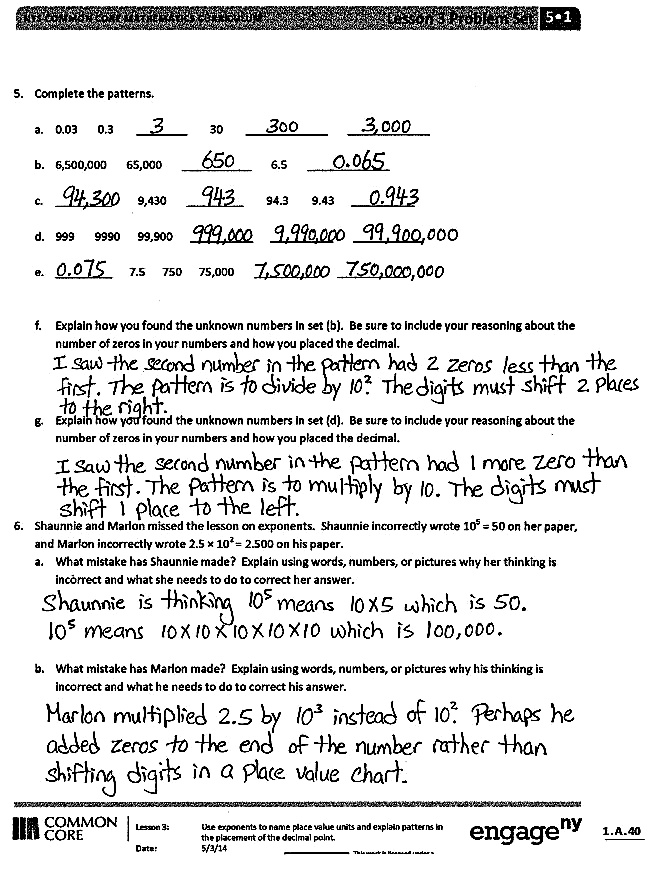 NYS COMMON CORE MATHEMATICS CURRICULUM Lesson 3 Problem Set 5•1
5. Complete the patterns.
a. 0.03 0.3 3 30 300 3,000
b. 6,500,000 65,000 650 6.5 0.065
c. 94,300 9,430 943 94.3 9.43 0.943
d. 999 9990 99,900 999,000 9,990,000 99,900,000
e. 0.075 7.5 750 75,000 7,500,000 750,000,000
f. Explain how you found the unknown numbers in set (b). Be sure to include your reasoning about the
number of zeros in your numbers and how you placed the decimal.
I saw the second number in the pattern had 2 zeros less than the
first. The pattern is to divide by 10². The digits must shift 2 places
to the right.
g. Explain how you found the unknown numbers in set (d). Be sure to include your reasoning about the
number of zeros in your numbers and how you placed the decimal.
I saw the second number in the pattern had 1 more zero than
the first. The pattern is to multiply by 10. The digits must
shift 1 place to the left.
6. Shaunnie and Marlon missed the lesson on exponents. Shaunnie incorrectly wrote 10⁵ = 50 on her paper,
and Marlon incorrectly wrote 2.5 × 10² = 2.500 on his paper.
a. What mistake has Shaunnie made? Explain using words, numbers, or pictures why her thinking is
incorrect and what she needs to do to correct her answer.
Shaunnie is thinking 10⁵ means 10X5 which is 50.
10⁵ means 10X10X10X10X10 which is 100,000.
b. What mistake has Marlon made? Explain using words, numbers, or pictures why his thinking is
incorrect and what he needs to do to correct his answer.
Marlon multiplied 2.5 by 10³ instead of 10². Perhaps he
added zeros to the end of the number rather than
shifting digits in a place value chart.
COMMON CORE
Lesson 3: Use exponents to name place value units and explain patterns in
the placement of the decimal point.
Date: 5/3/14
engage ny
1.A.40